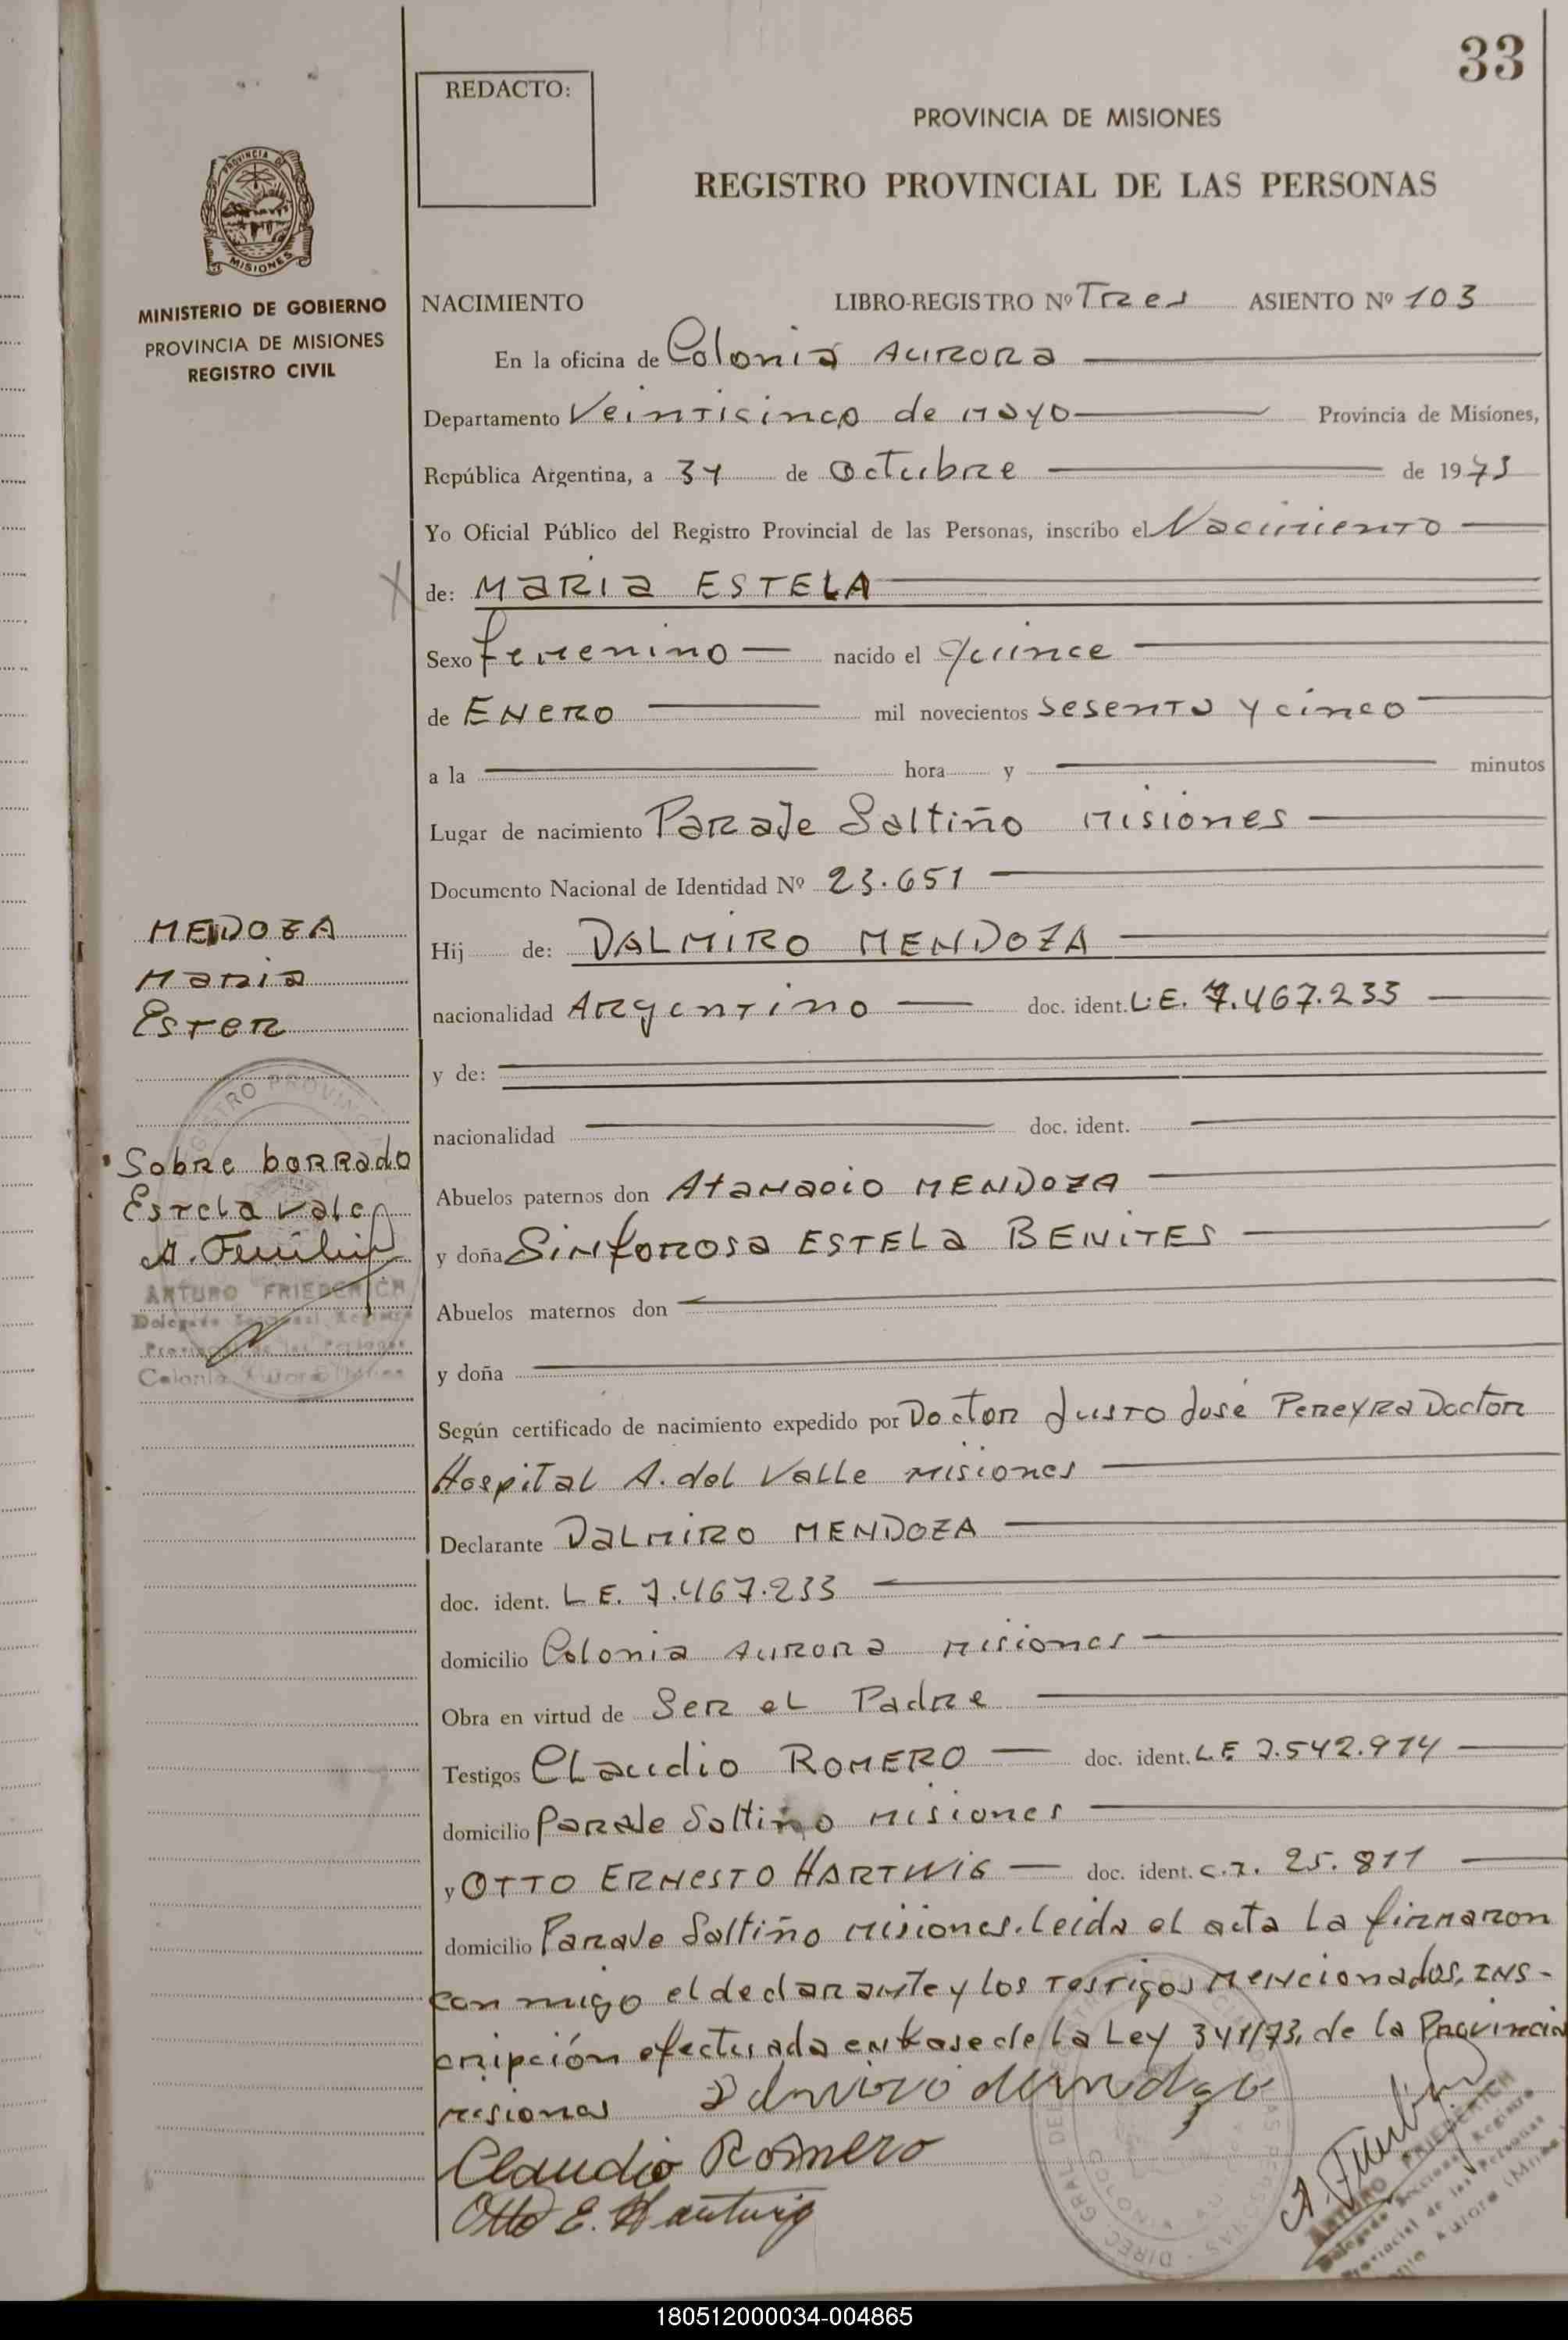 33
REDACTO:
PROVINCIA DE MISIONES
REGISTRO PROVINCIAL DE LAS PERSONAS
PROVINCIA DE
MISIONES
MINISTERIO DE GOBIERNO
PROVINCIA DE MISIONES
REGISTRO CIVIL
NACIMIENTO LIBRO-REGISTRO Nº Tres ASIENTO Nº 103
En la oficina de Colonia Aurora
Departamento Veinticinco de Mayo Provincia de Misiones,
República Argentina, a 31 de Octubre de 1973
Yo Oficial Público del Registro Provincial de las Personas, inscribo el Nacimiento
de: MARIA ESTELA
Sexo femenino nacido el quince
de Enero mil novecientos sesenta y cinco
a la hora y minutos
Lugar de nacimiento Paraje Saltiño Misiones
Documento Nacional de Identidad Nº 23.651
MENDOZA
Maria
Ester
Hij de: DALMIRO MENDOZA
nacionalidad Argentino doc. ident. L.E. 7.467.233
y de:
nacionalidad doc. ident.
Sobre borrado
Estela vale
A. Friederich
ARTURO FRIEDERICH
Delegado Seccional Registro
Provincial de las Personas
Colonia Aurora
Abuelos paternos don Atanacio MENDOZA
y doña Sinforosa ESTELA BENITES
Abuelos maternos don
y doña
Según certificado de nacimiento expedido por Doctor Justo José Pereyra Doctor
Hospital A. del Valle Misiones
Declarante Dalmiro MENDOZA
doc. ident. L.E. 7.467.233
domicilio Colonia Aurora Misiones
Obra en virtud de Ser el Padre
Testigos Claudio ROMERO doc. ident. L.E 7.542.914
domicilio Paraje Saltiño Misiones
y OTTO ERNESTO HARTWIG doc. ident. C.I. 25.811
domicilio Paraje Saltiño Misiones. Leida el acta la firmaron
conmigo el declarante y los testigos mencionados. Ins-
cripción efectuada en base de la Ley 341/73, de la Provincia
Misiones Dalmiro Mendoza
Claudio Romero
Otto E. Hartwig
A. Friederich
ARTURO FRIEDERICH
Delegado Seccional Registro
Provincial de las Personas
180512000034-004865